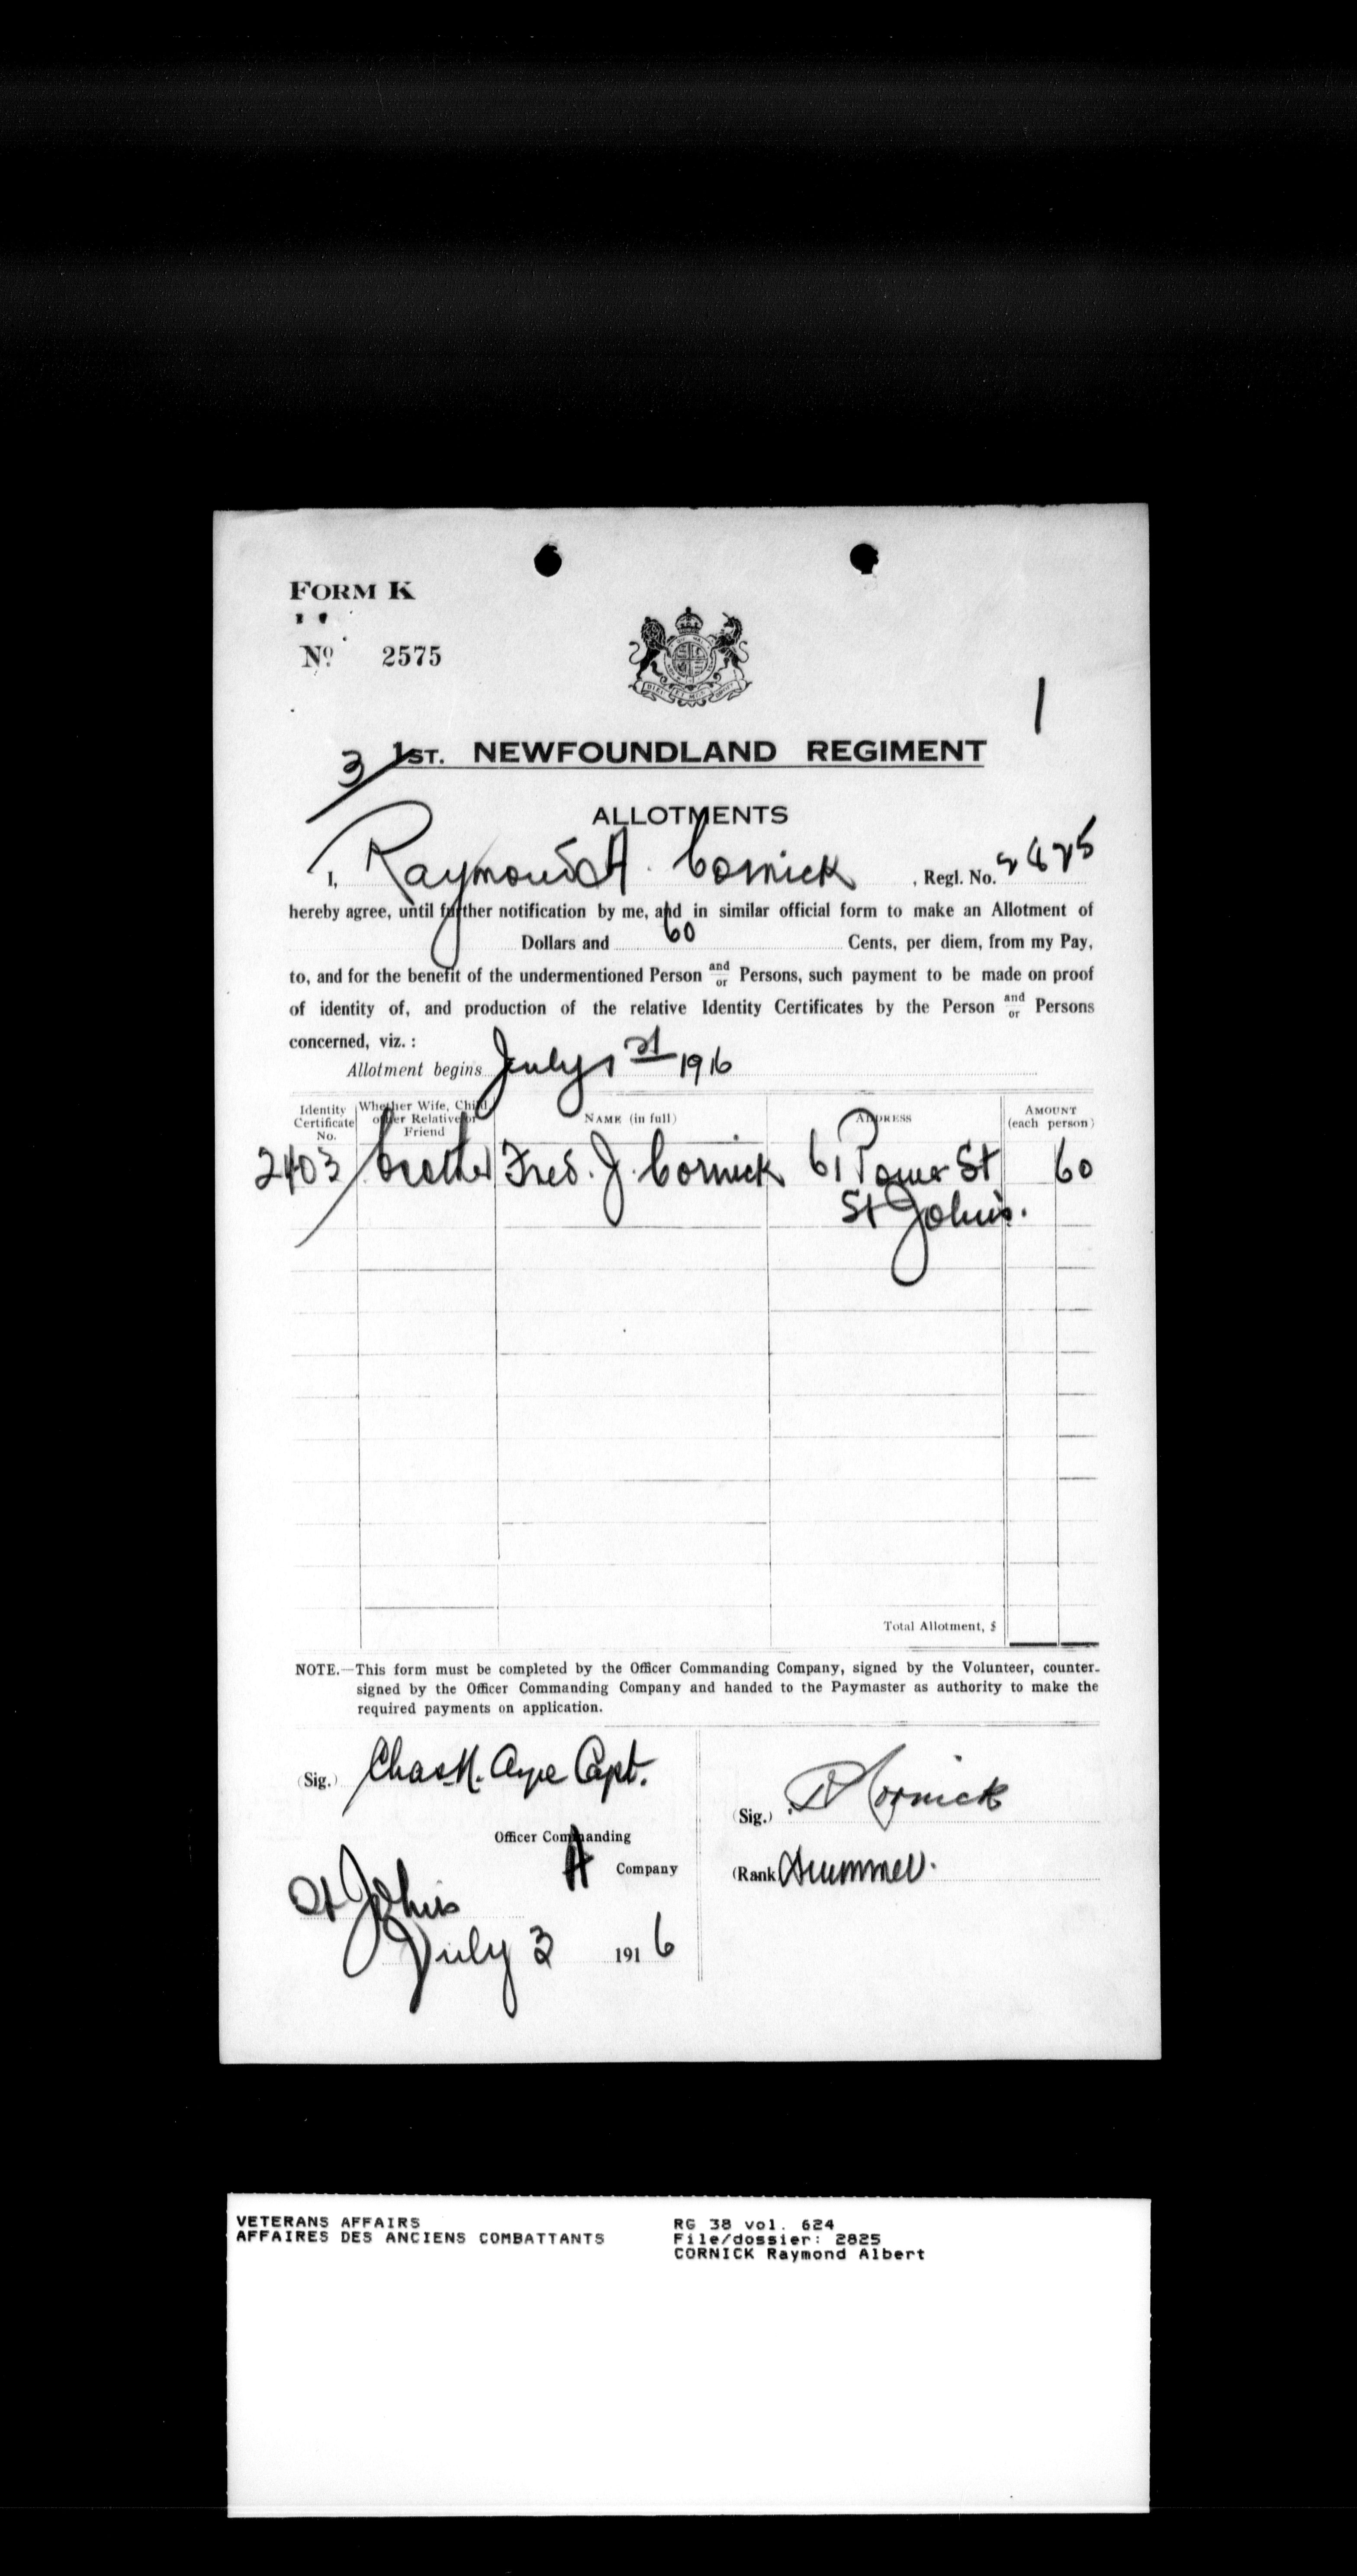 FORM K
Nº 2575
1
3 1ST. NEWFOUNDLAND REGIMENT
ALLOTMENTS
I, Raymond A. Cornick , Regl. No. 2825
hereby agree, until further notification by me, and in similar official form to make an Allotment of
Dollars and 60 Cents, per diem, from my Pay,
to, and for the benefit of the undermentioned Person and/or Persons, such payment to be made on proof
of identity of, and production of the relative Identity Certificates by the Person and/or Persons
concerned, viz. :
Allotment begins July 1st 1916
Identity Certificate No. Whether Wife, Child, other Relative or Friend NAME (in full) ADDRESS AMOUNT (each person)
2403 brother Fred. J. Cornick 61 Power St 60
St Johns.
Total Allotment, $
NOTE.—This form must be completed by the Officer Commanding Company, signed by the Volunteer, counter-
signed by the Officer Commanding Company and handed to the Paymaster as authority to make the
required payments on application.
(Sig.) Chas. H. Ayre Capt.
Officer Commanding
A Company
St Johns
July 3 1916
(Sig.) R Cornick
(Rank Drummer.
VETERANS AFFAIRS
AFFAIRES DES ANCIENS COMBATTANTS
RG 38 vol. 624
File/dossier: 2825
CORNICK Raymond Albert